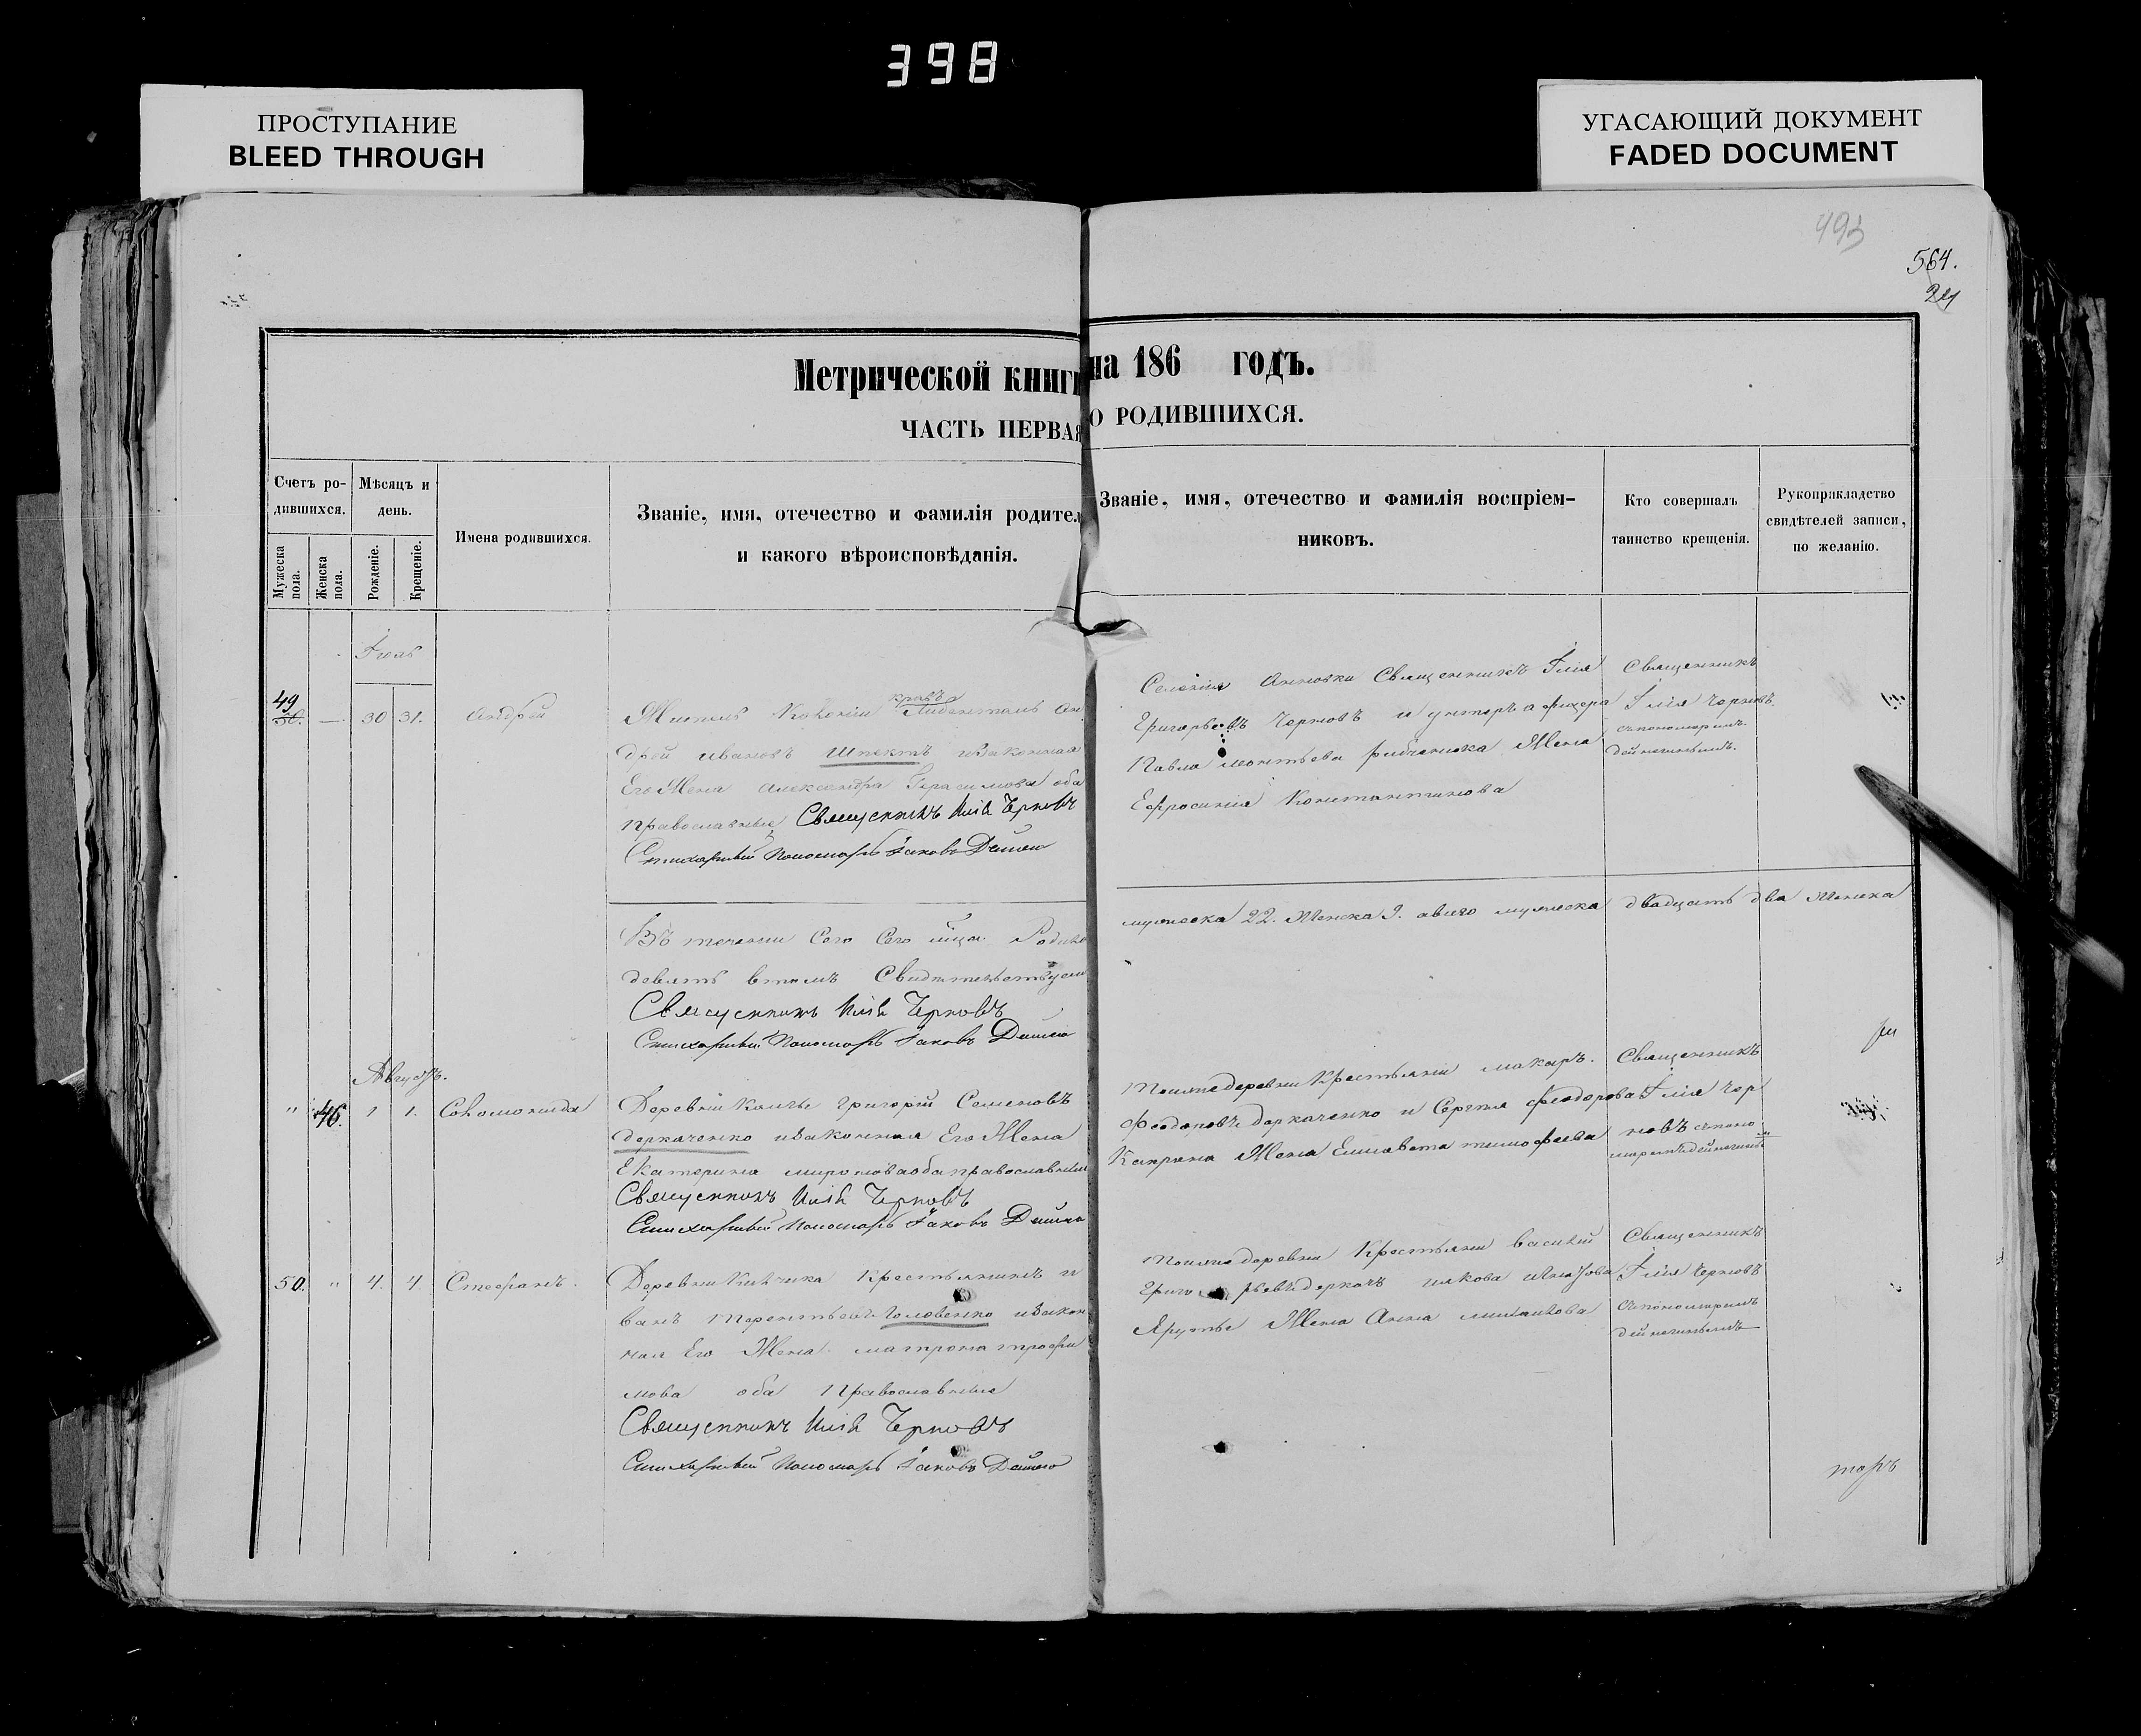 398
ПРОСТУПАНИЕ
BLEED THROUGH
УГАСАЮЩИЙ ДОКУМЕНТ
FADED DOCUMENT
493
564.
Метрической книги на 186 годъ.
ЧАСТЬ ПЕРВАЯ О РОДИВШИХСЯ.
Счетъ ро-
дившихся.
Мужеска пола.
Женска пола.
Мѣсяцъ и
день.
Рожденіе.
Крещеніе.
Имена родившихся.
Званіе, имя, отечество и фамилія родител
и какого вѣроисповѣданія.
Званіе, имя, отечество и фамилія воспріем-
никовъ.
Кто совершалъ
таинство крещенія.
Рукоприкладство
свидѣтелей записи,
по желанію.
Іюль
49
30 31. Андрей
Житель Колоніи Либенталь Ан
дрей Ивановъ Шпектъ изаконная
Его Жена Александра Герасимова оба
Православные Священникъ Илія Черновъ
Стихарный Пономарь Іаковъ
Селенія Анновки Священникъ Ілія
Григорьевъ Черновъ и унтеръ афицера
Павла Леонтьева Жена
Ефросинія Константинова
Священникъ
Ілія Черновъ
спономаремъ
Въ теченіи Сего Сего мца Родило
девять втомъ Свидѣтельствуем
Священникъ Илія Черновъ
Стихарный Пономарь Іаковъ
мужеска 22. Женска 9. авсего мужеска двадцать два Женска
Августъ.
" 46. 1 1. Соломонида
Деревни Григорій Семеновъ
Деркаченко изаконная Его Жена
Екатерина миронова оба православные
Священникъ Илія Черновъ
Стихарный Пономарь Іаковъ
Тоижедеревни Крестьяни макаръ.
Феодоровъ Деркаченко и Сергея Феодорова
Капрана Жена Елисавета тимофеева
Священникъ
Ілія Чер
новъ спономаремъ
50. " 4. 4. Стефанъ.
Деревни Крестьянинъ и
ванъ Терентьевъ Головенко изакон
ная Его Жена матрона трофи
мова оба Православные
Священникъ Илія Черновъ
Стихарный Пономарь Іаковъ
Тоиже деревни Крестьяни василій
Григорьевъ Деркачъ иякова
Жена Анна михаилова
Священникъ
Ілія Черновъ
спономаремъ